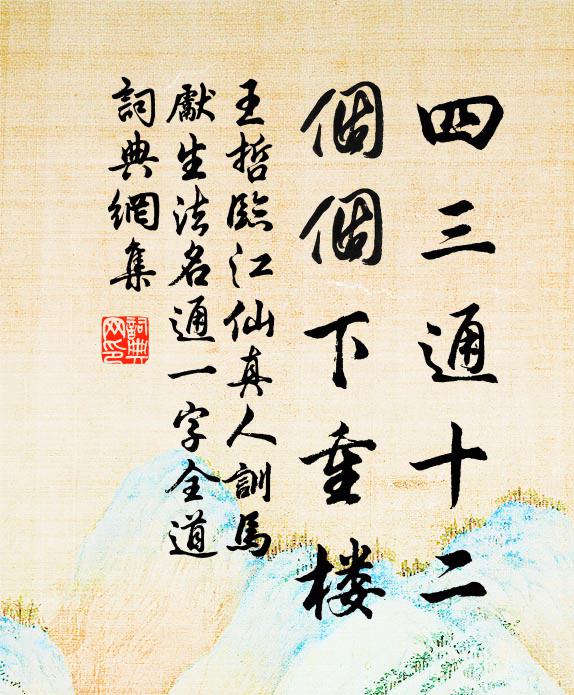 四三通十二
個個下重楼
王哲臨江仙真人訓馬
獻生法名通一字全道
詞典網集
詞典
网印